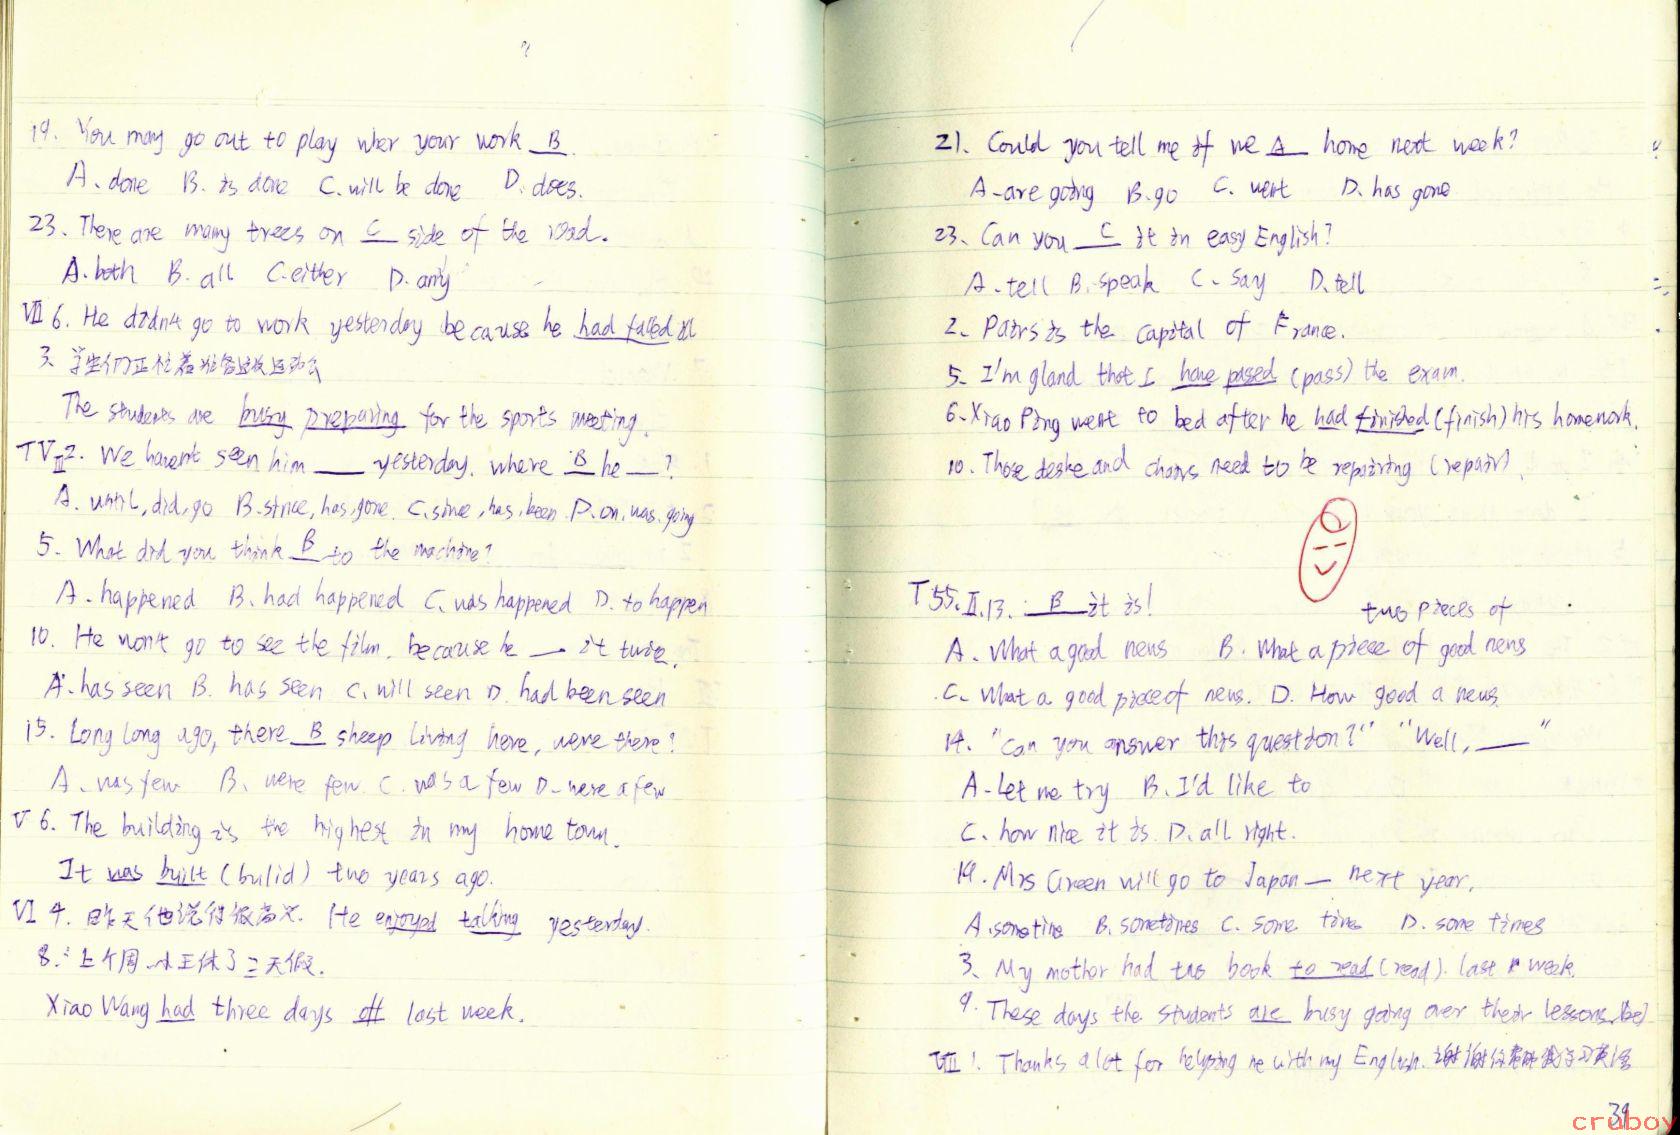 19. You may go out to play when your work B.
A. done B. is done C. will be done D. does.
23. There are many trees on C side of the road.
A. both B. all C. either D. any
VII 6. He didn't go to work yesterday because he had falled ill
3. 学生们正忙着准备运动会
The students are busy preparing for the sports meeting.
2. We haven't seen him ___ yesterday. where B he ___?
A. until, did, go B. since, has, gone. C. since, has, been D. on, was, going
5. What did you think B to the machine?
A. happened B. had happened C. was happened D. to happen
10. He won't go to see the film. because he ___ it twice.
A. has seen B. has seen C. will seen D. had been seen
15. Long long ago, there B sheep living here, were there?
A. was few B. were few C. was a few D. were a few
V 6. The building is the highest in my home town.
It was built (bulid) two years ago.
VI 4. 昨天他说得很高兴. He enjoyed talking yesterday.
8. 上个周小王休了三天假.
Xiao Wang had three days off last week.
21. Could you tell me if we A home next week?
A. are going B. go C. went D. has gone
23. Can you C it in easy English?
A. tell B. speak C. say D. tell
2. Pairs is the capital of France.
5. I'm gland that I have pased (pass) the exam.
6. Xiao Ping went to bed after he had finished (finish) his homework.
10. Those deske and chairs need to be repairing (repair).
T55. II. 13. B it is!
two pieces of
A. What a good news B. What a piece of good news
C. What a good piece of news. D. How good a news
14. "Can you answer this question?" "Well, ___"
A. Let me try B. I'd like to
C. how nice it is. D. all right.
19. Mrs Green will go to Japan ___ next year.
A. sometime B. sometimes C. some time D. some times
3. My mother had two book to read (read). last week.
9. These days the students are busy going over their lessons. (be)
VII 1. Thanks a lot for helping me with my English. 谢谢你帮助我学习英语
39
cruboy